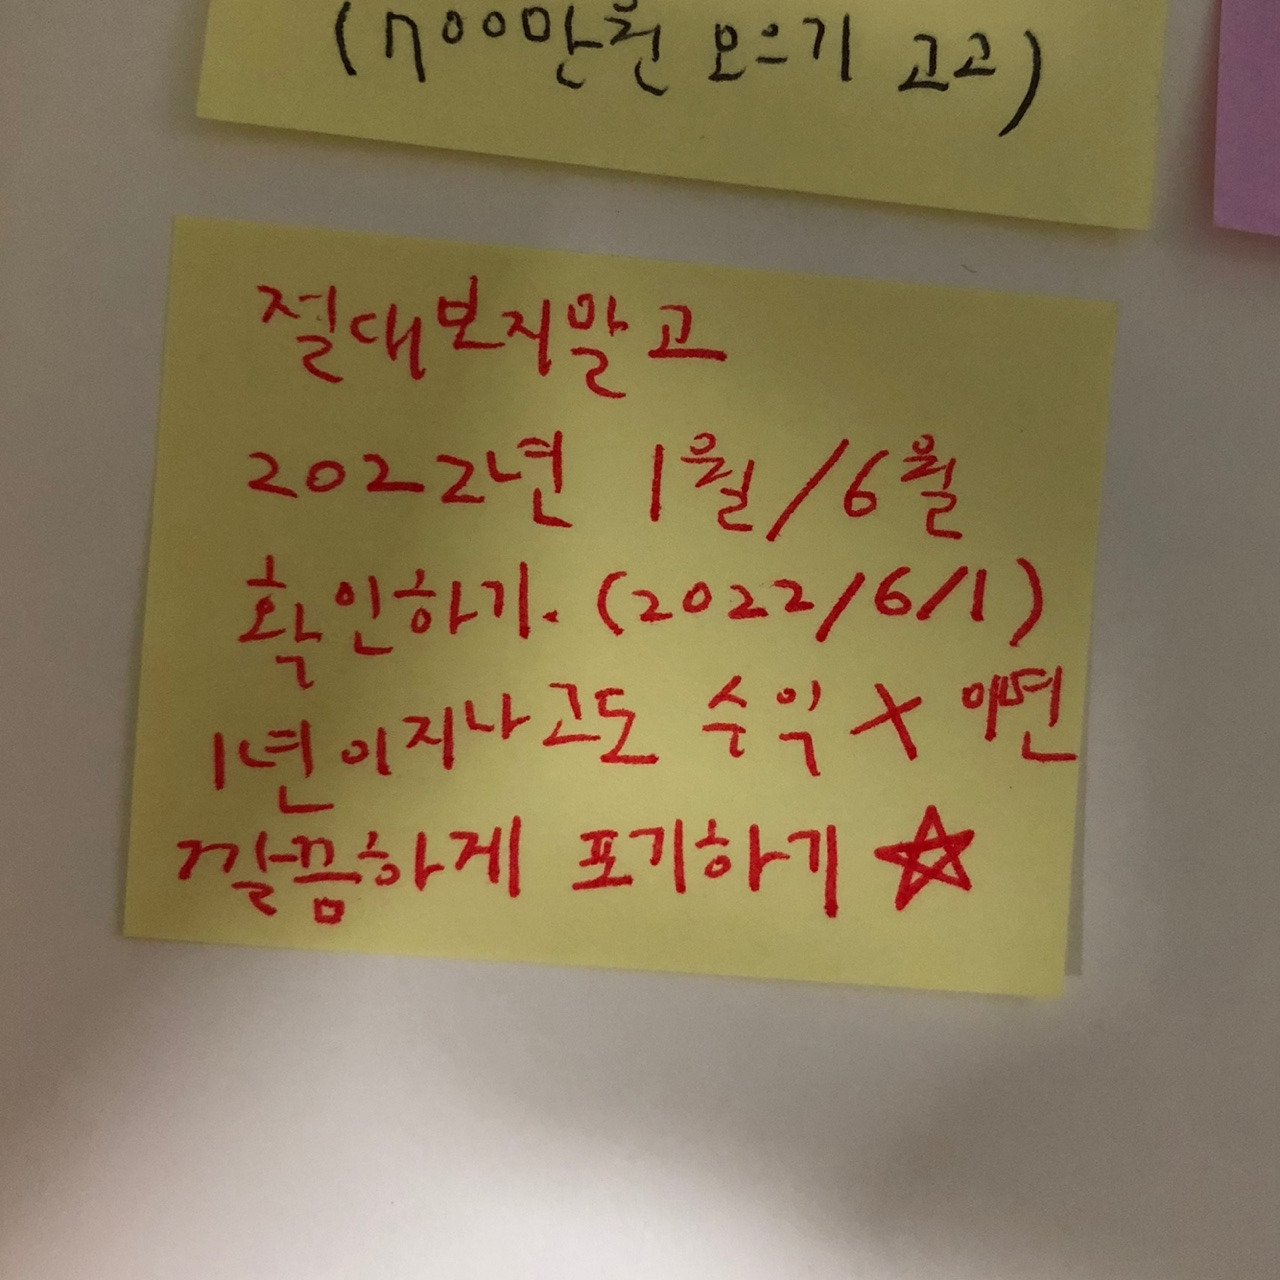 (700만원 모으기 고고)
절대보지말고
2022년 1월/6월
확인하기. (2022/6/1)
1년이지나고도 수익 X 이면
깔끔하게 포기하기 ☆